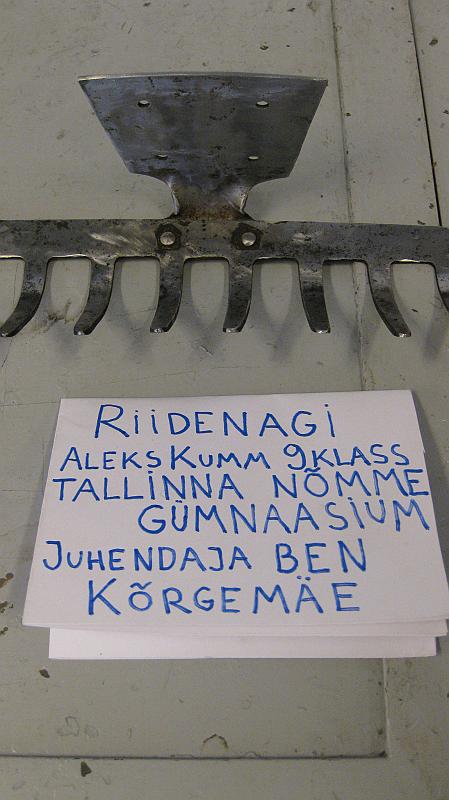 RIIDENAGI
ALEKS KUMM 9 KLASS
TALLINNA NÕMME
GÜMNAASIUM
JUHENDAJA BEN
KÕRGEMÄE